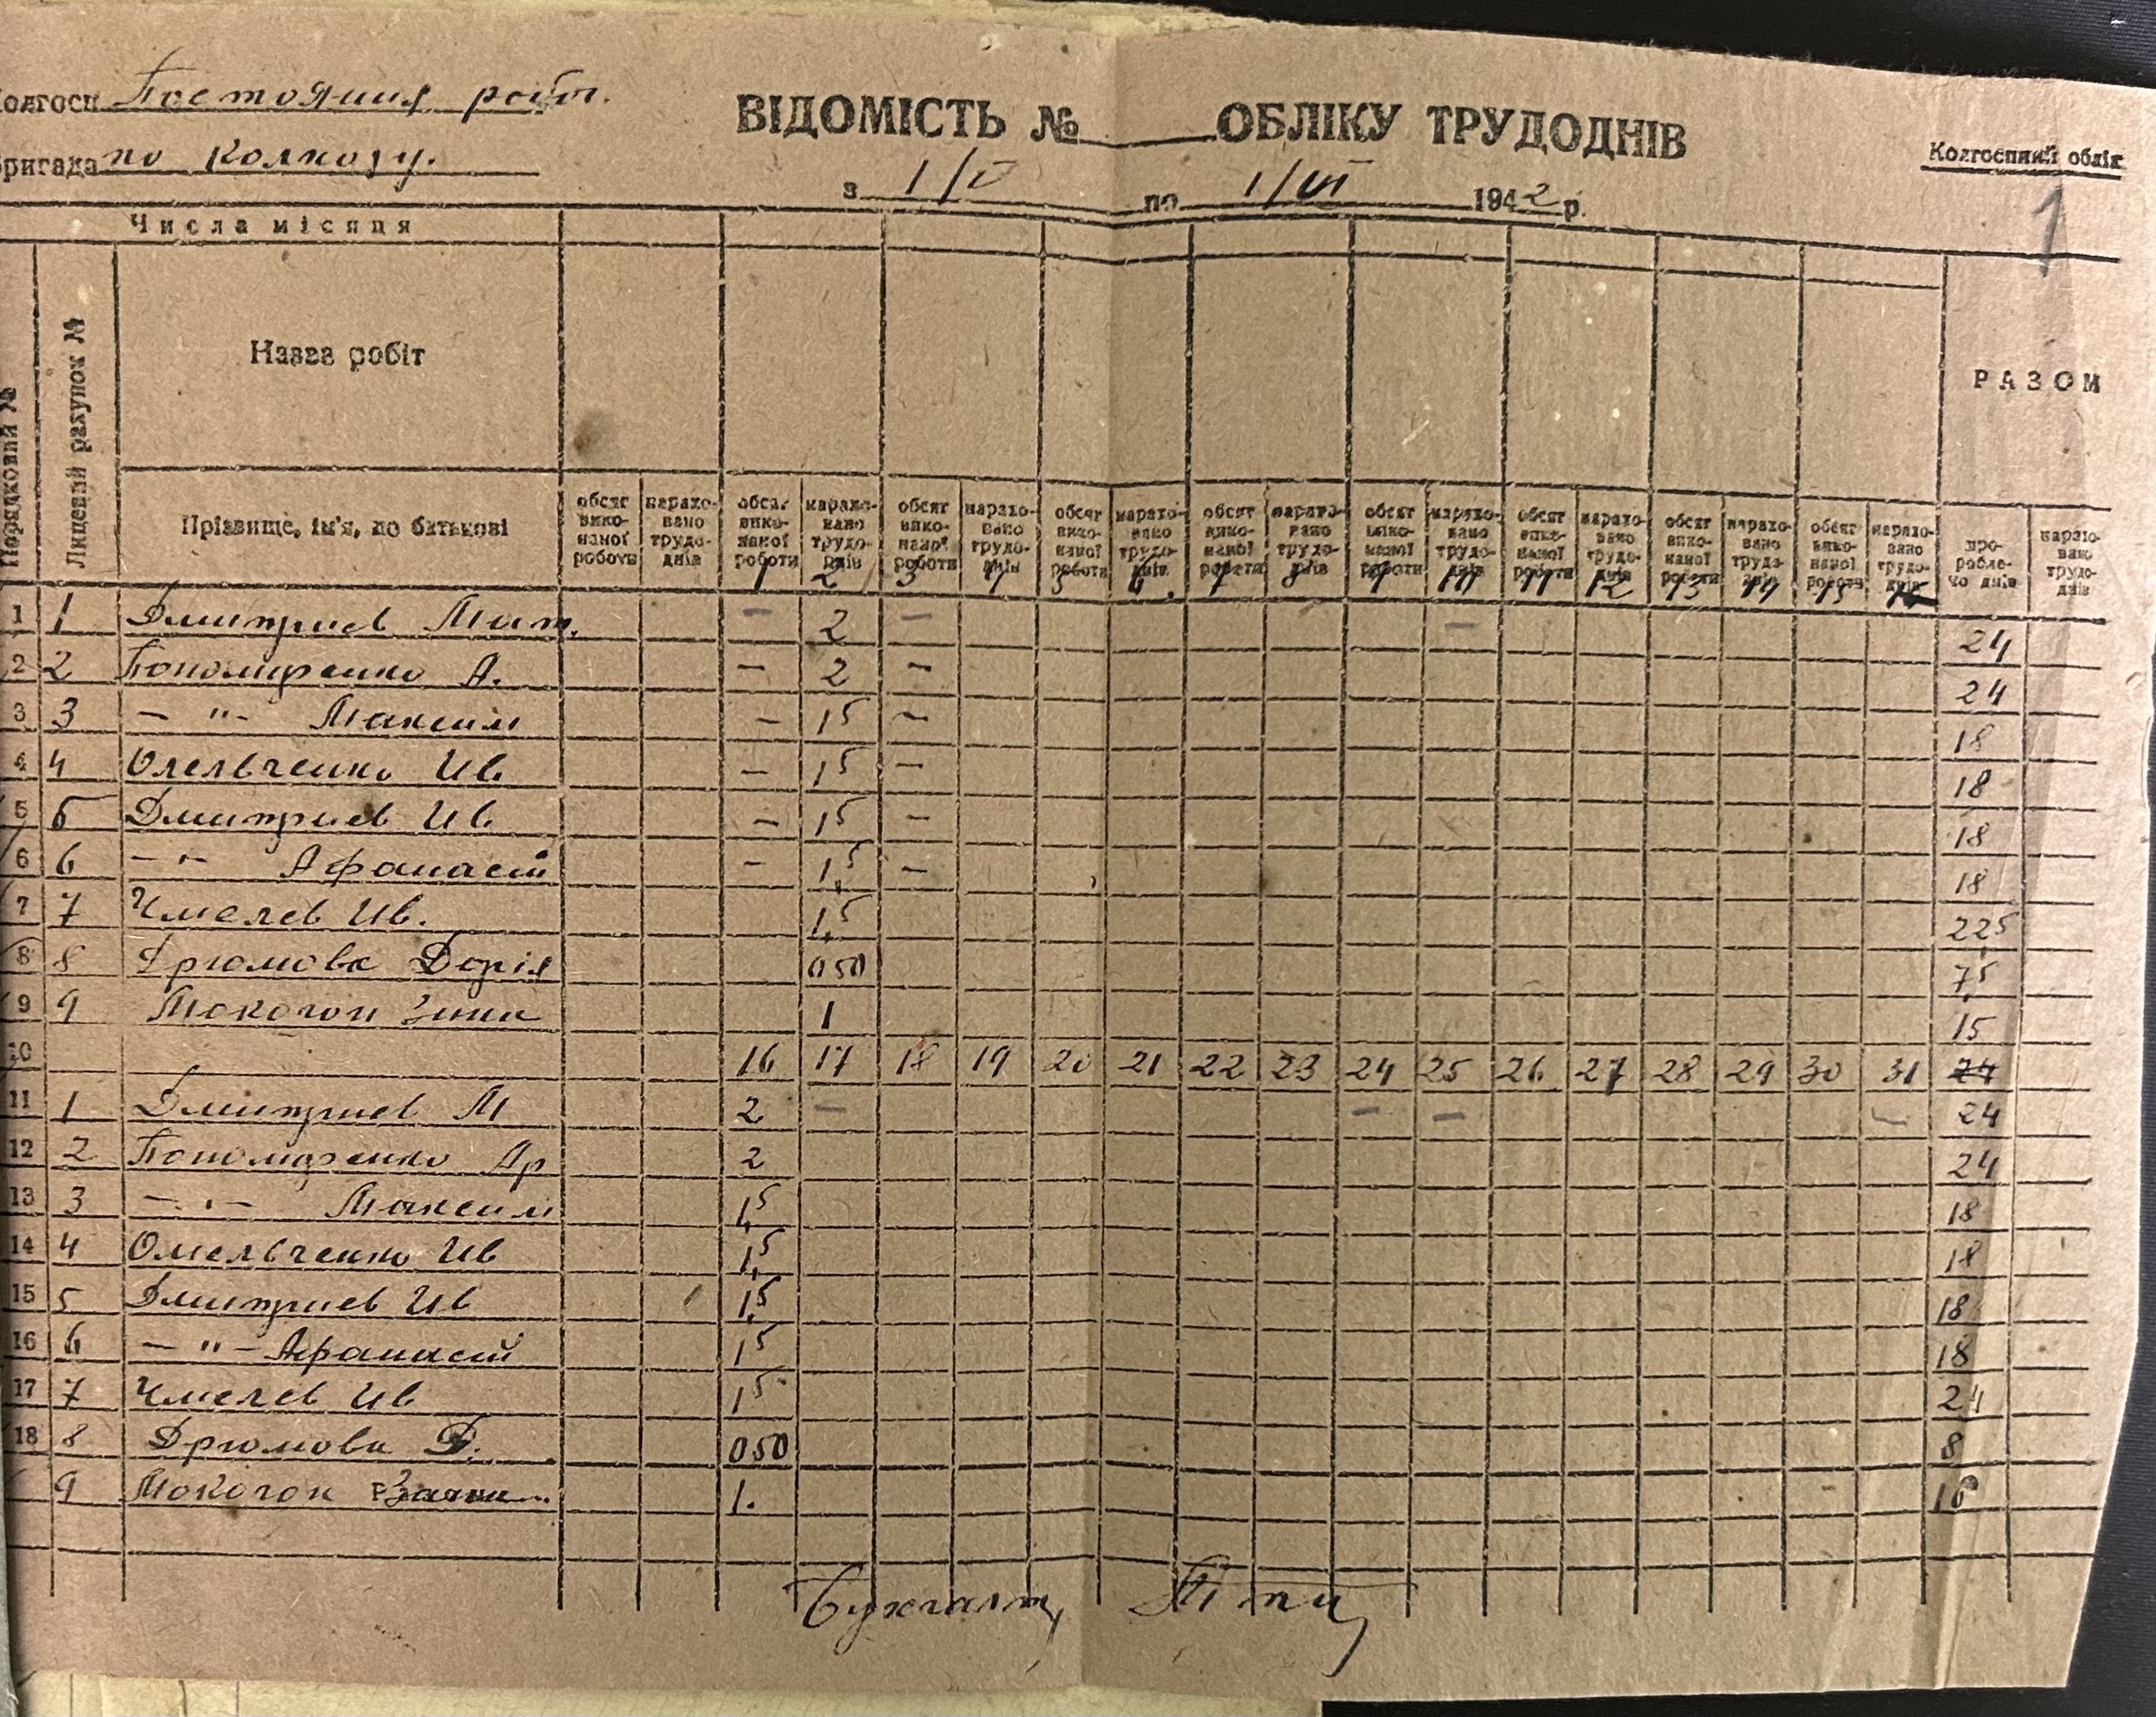 Колгосп Постояния робоч.
Бригада по колхозу.
ВІДОМІСТЬ № ОБЛІКУ ТРУДОДНІВ
з 1/V по 1/VI 1942 р.
Колгоспний облік
1
Числа місяця
Порядковий №
Лицевий рахунок №
Назва робіт
РАЗОМ
Прізвище, ім'я, по батькові
обсяг виконаної роботи нарахо-вано трудо-днів обсяг вико-наної роботи нарахо-вано трудо-днів обсяг вико-наної роботи нарахо-вано трудо-днів обсяг вико-наної роботи нарахо-вано трудо-днів обсяг вико-наної роботи нарахо-вано трудо-днів обсяг вико-наної роботи нарахо-вано трудо-днів обсяг вико-наної роботи нарахо-вано трудо-днів обсяг вико-наної роботи нарахо-вано трудо-днів обсяг вико-наної роботи нарахо-вано трудо-днів про-робле-но днів нарахо-вано трудо-днів
1 2 3 4 5 6 7 8 9 10 11 12 13 14 15
1 1 Дмитриев Мит. – 2 – – 24
2 2 Пономаренко А. – 2 – 24
3 3 – " – Максим – 15 – 18
4 4 Омельченко Ив. – 15 – 18
5 5 Дмитриев Ив. – 15 – 18
6 6 – " – Афанасий – 1,5 – 18
7 7 Чмелев Ив. 1,5 225
8 8 Дрюмова Дорія 050 7,5
9 9 Мокогон Зина 1 15
10 16 17 18 19 20 21 22 23 24 25 26 27 28 29 30 31 24
11 1 Дмитриев М 2 – – – – 24
12 2 Пономаренко Ар 2 24
13 3 – " – Максим 1,5 18
14 4 Омельченко Ив 1,5 18
15 5 Дмитриев Ив 1,5 18
16 6 – " – Афанасий 15 18
17 7 Чмелев Ив 15 24
18 8 Дрюмова Д. 050 8
9 Мокогон 1. 16
Бухгалт